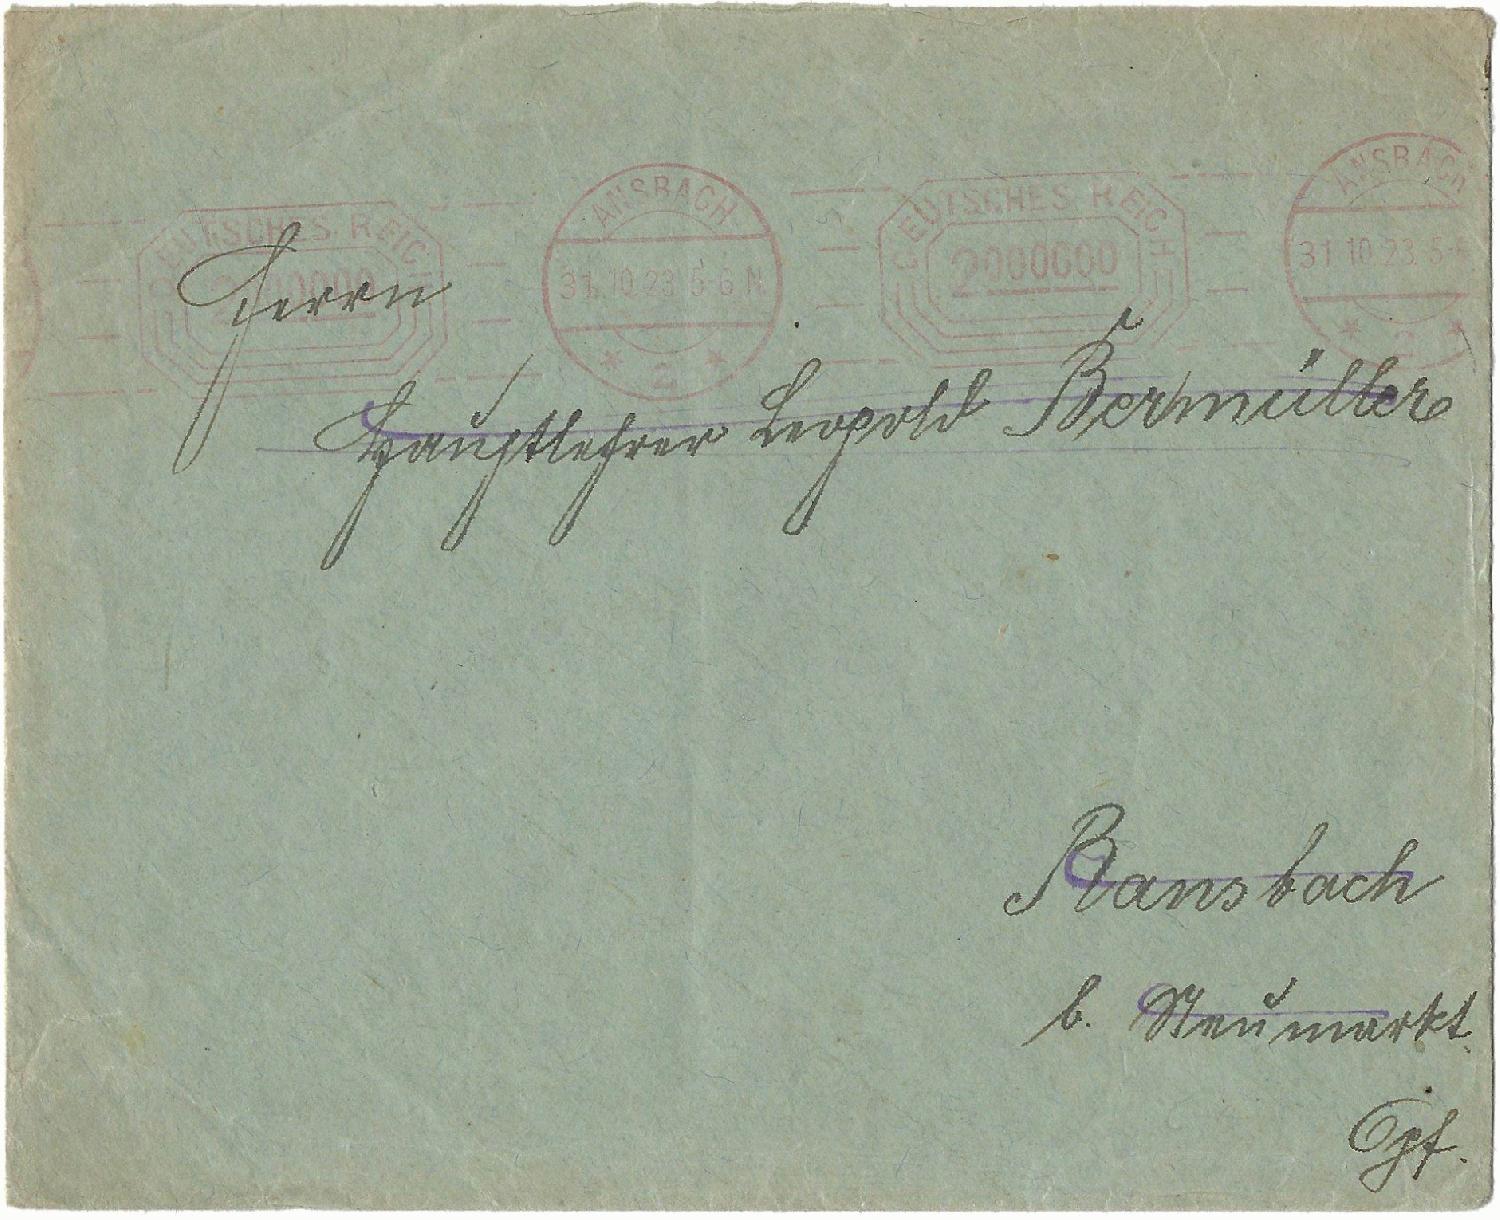 DEUTSCHES REICH 2000000 ANSBACH 31.10.23 5-6 N 2 DEUTSCHES REICH 2000000 ANSBACH 31.10.23. 5-6 2
Herrn
Hauptlehrer Leopold Bermüller
Ransbach
b. Neumarkt.
Opf.